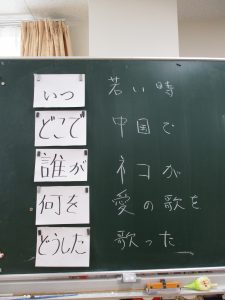 いつ 若い時
どこで 中国で
誰が ネコが
何を 愛の歌を
どうした 歌った